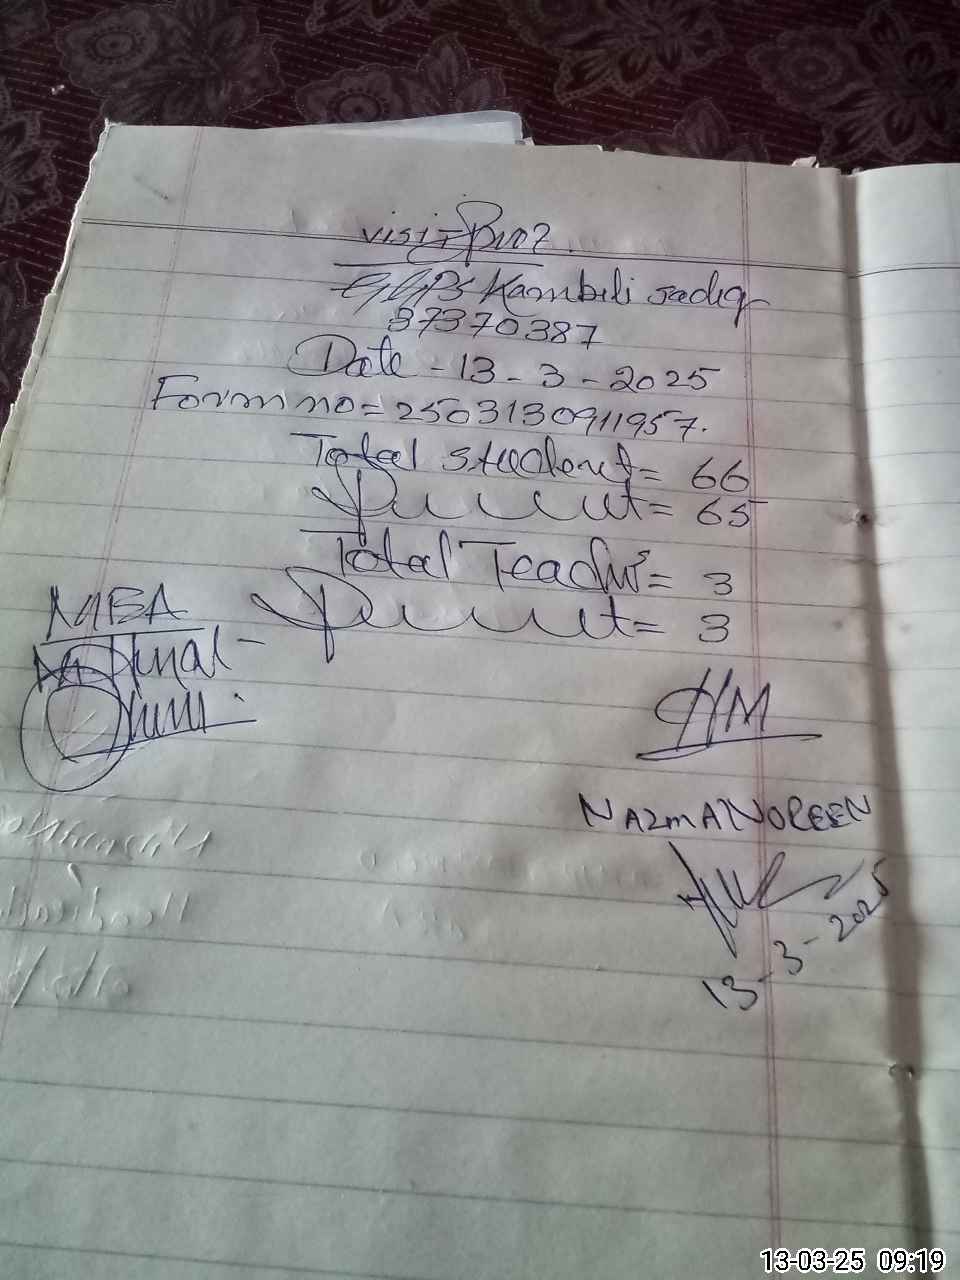 visit Proof
GGPS Kambili sadiq
37370387
Date - 13 - 3 - 2025
Form no = 2503130911957.
Total student = 66
Present = 65
Total Teacher = 3
Present = 3
MEA
HM
NAZMA NOREEN
13-3-2025
13-03-25 09:19